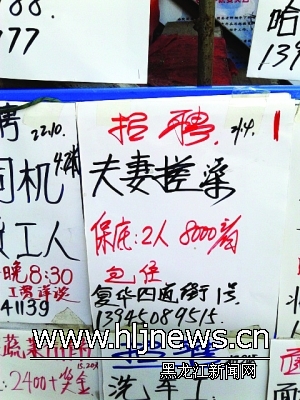 88.
77
哈
139
聘
22.10.
司机
工人
晚8:30
工资详谈
41139
招聘
夫妻搓澡
保底:2人 8000高
包住
复华四道街1号
13945089515.
www.hljnews.cn
黑龙江新闻网
蔬菜
2400+奖金
招聘
洗车工
面